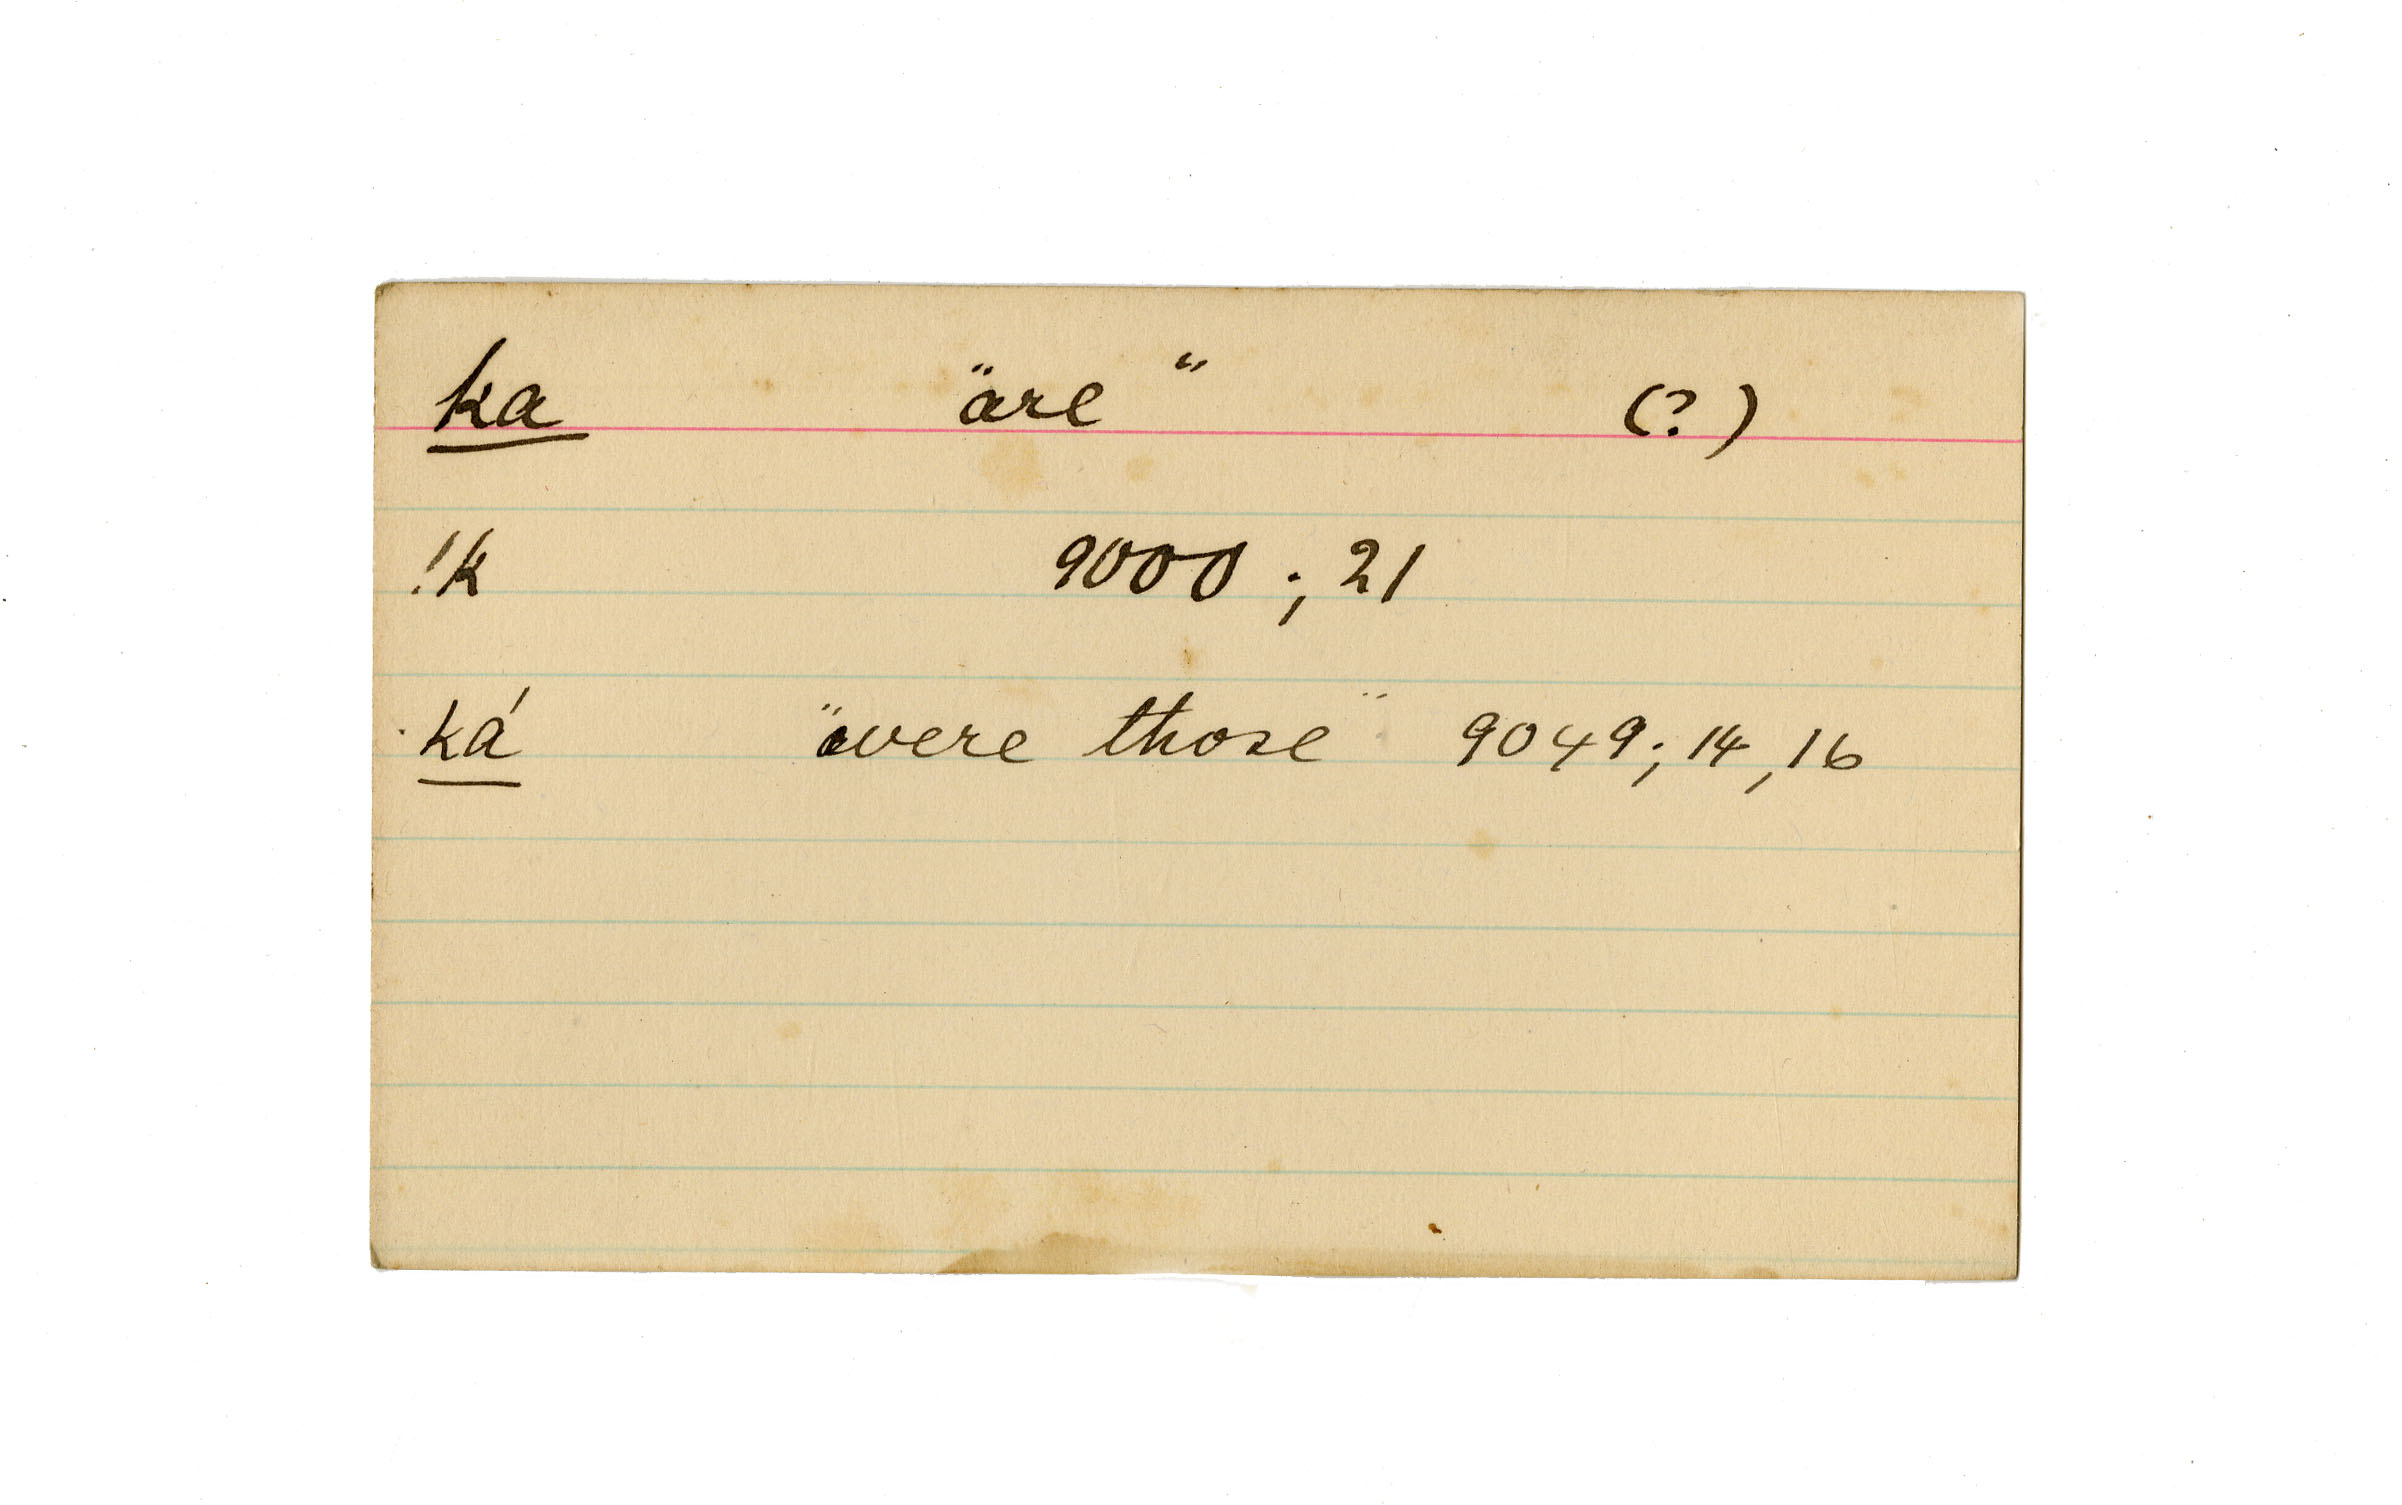 ka "are" (?)
!k 9000 ; 21
ká "were those" 9049; 14, 16